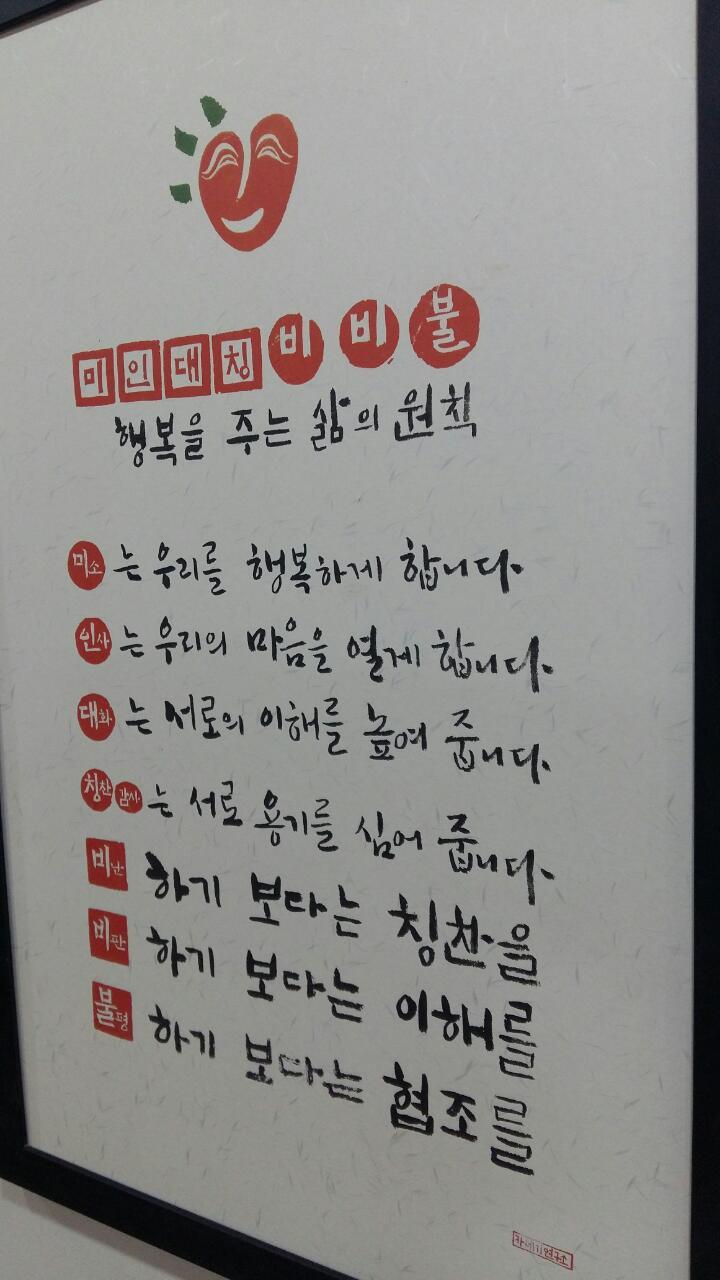 미인대칭비비불
행복을 주는 삶의 원칙
미소는 우리를 행복하게 합니다.
인사는 우리의 마음을 열게 합니다.
대화는 서로의 이해를 높여 줍니다.
칭찬 감사는 서로 용기를 심어 줍니다.
비난하기 보다는 칭찬을
비판하기 보다는 이해를
불평하기 보다는 협조를
카네기연구소